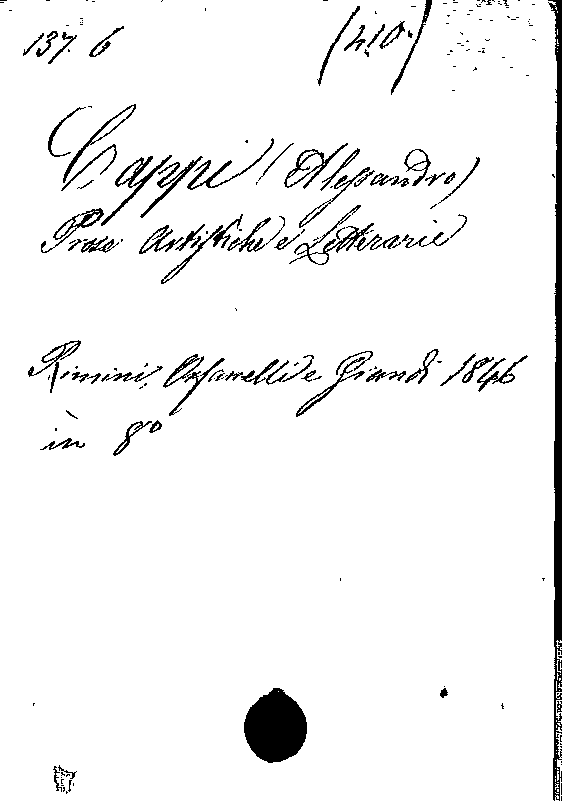 137. 6 (410.)
Cappi (Alessandro)
Prose Artistiche e Letterarie
Rimini, Orfanelli e Grandi 1846
in 8°